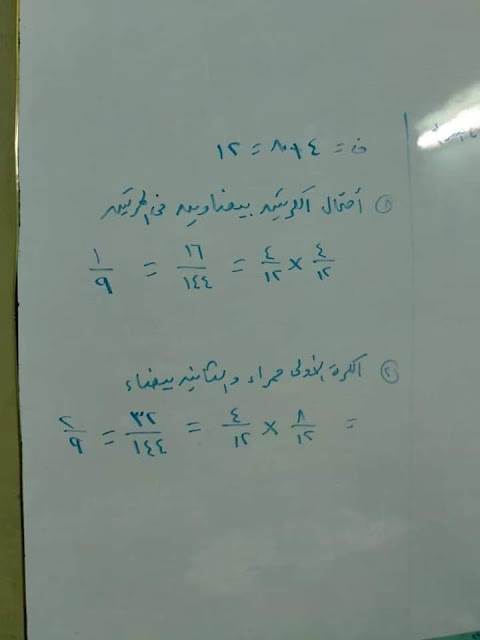 ن = ٤ + ٨ = ١٢
① احتمال الكرتين بيضاوين في المرتين
٤/١٢ × ٤/١٢ = ١٦/١٤٤ = ١/٩
② الكرة الأولى حمراء والثانية بيضاء
= ٨/١٢ × ٤/١٢ = ٣٢/١٤٤ = ٢/٩